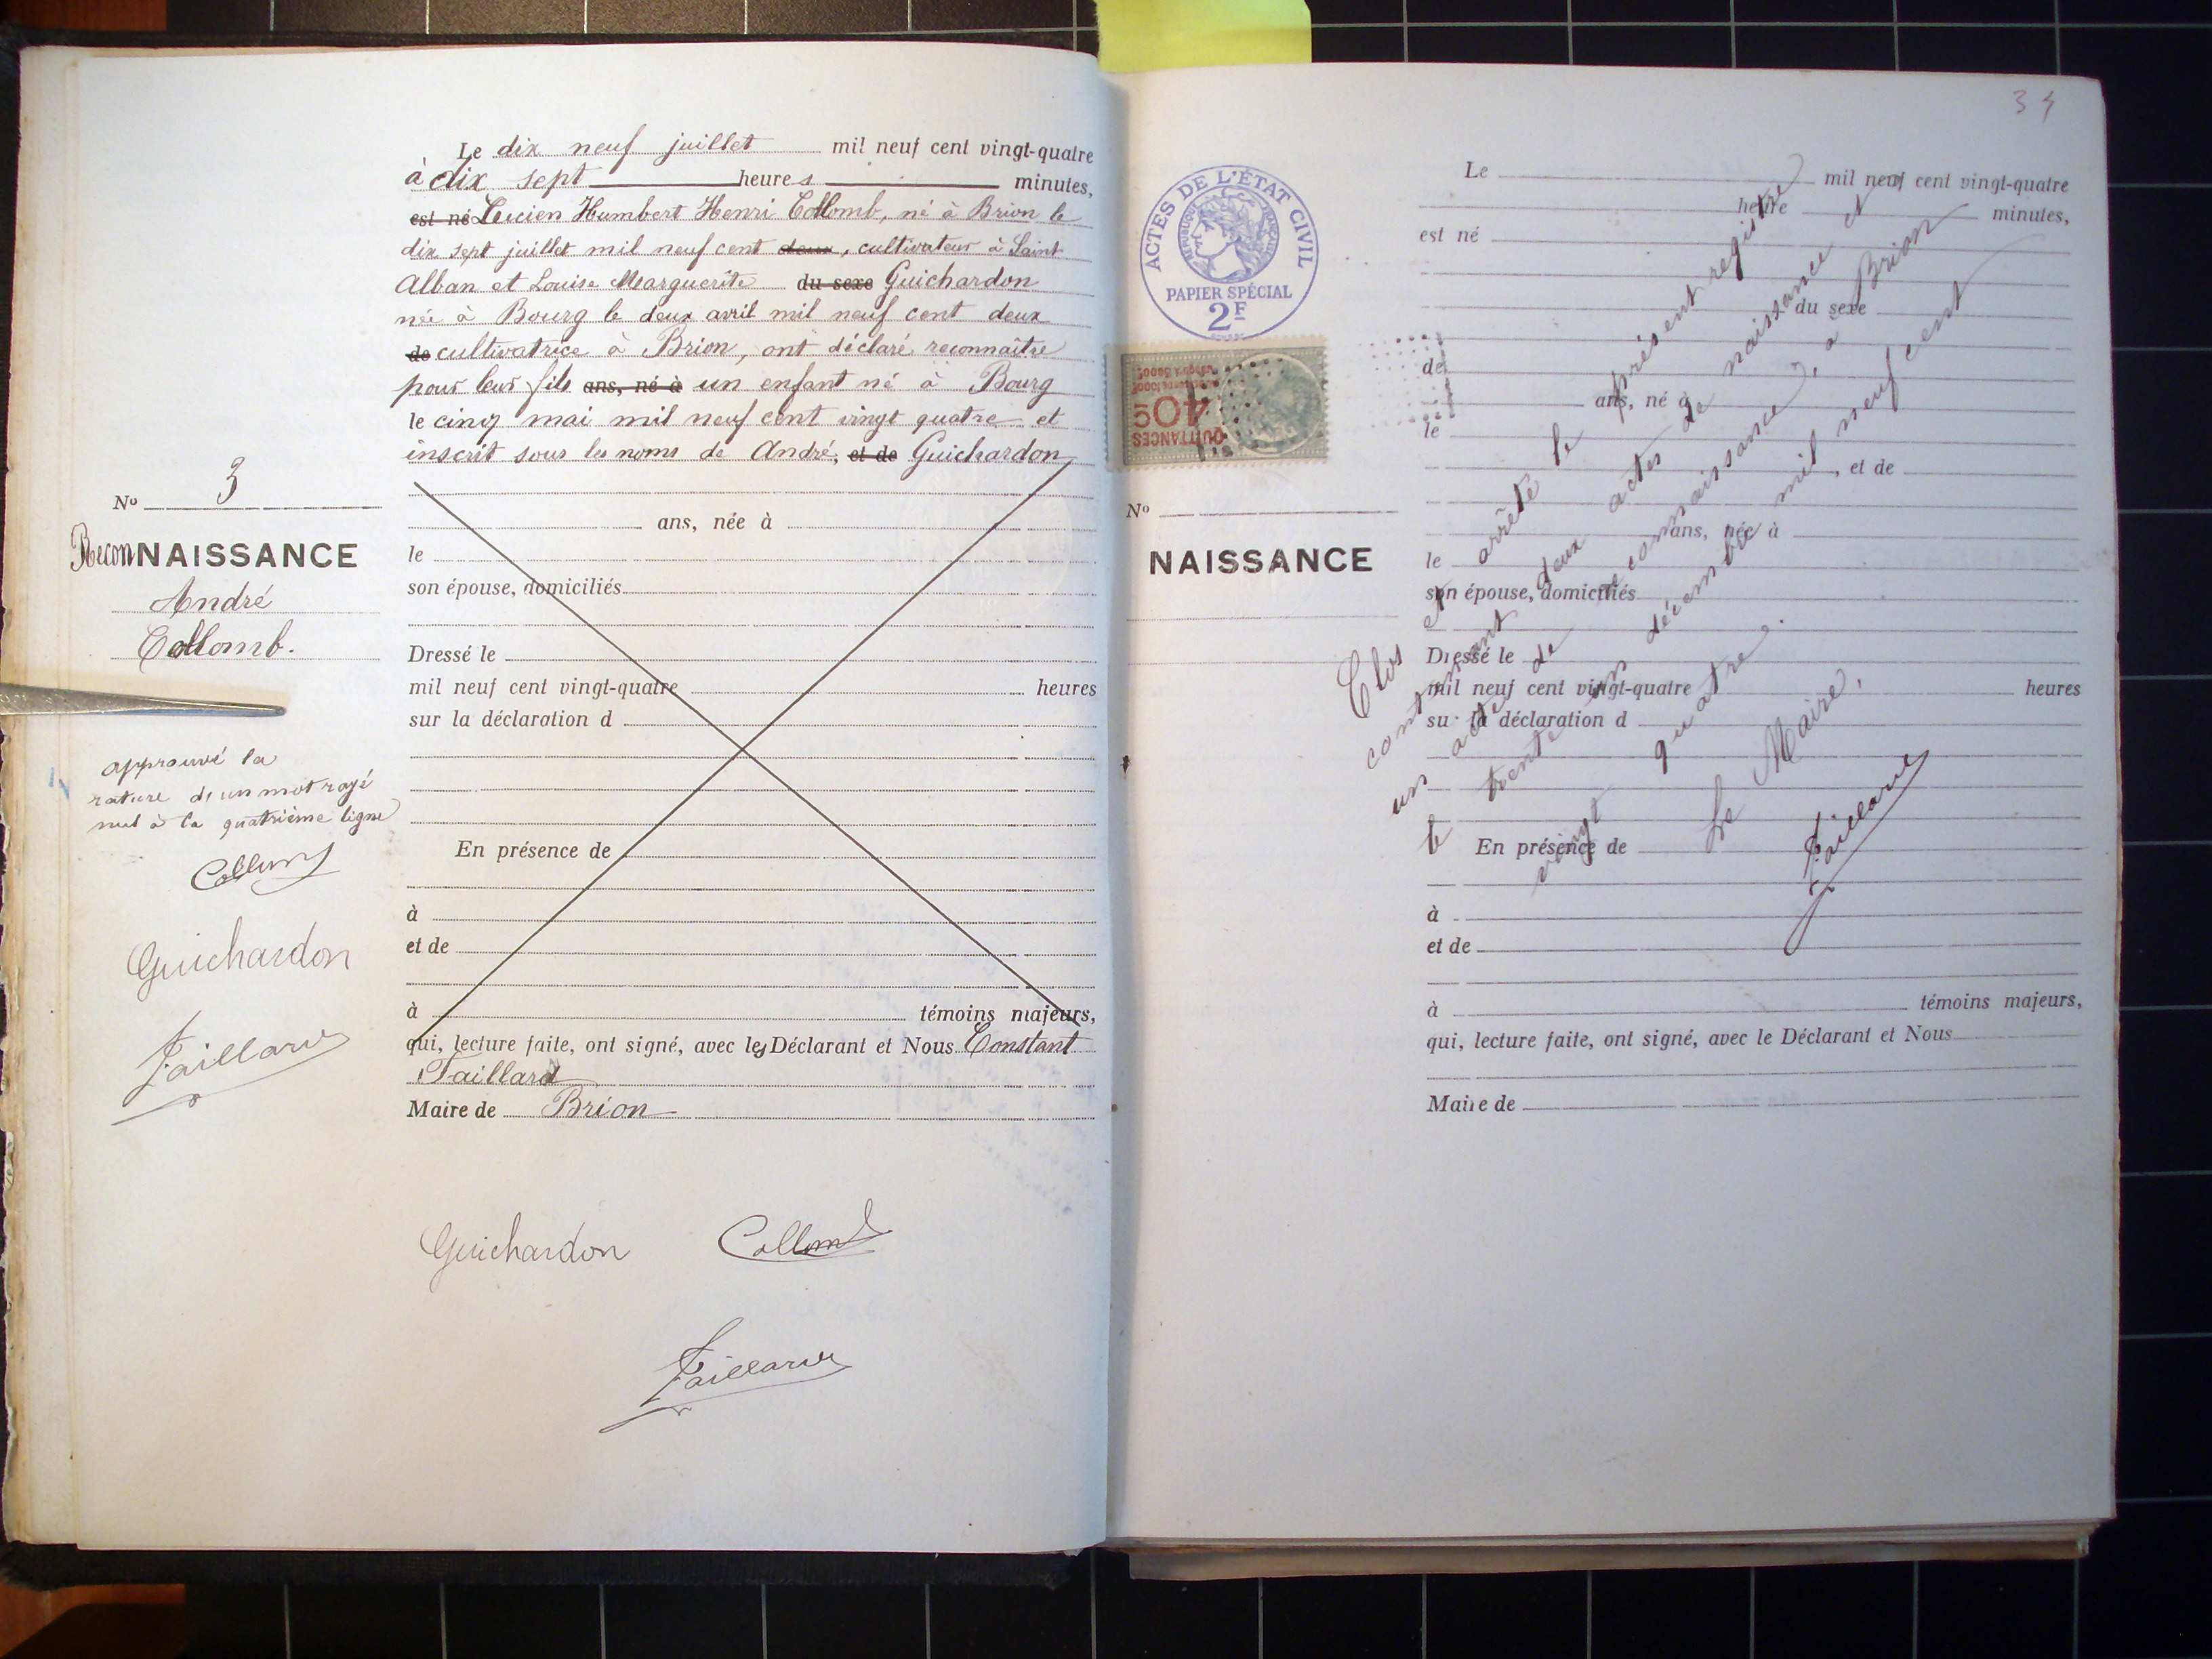 Le dix neuf juillet mil neuf cent vingt-quatre
à dix sept heures minutes,
est né Lucien Humbert Henri Collomb, né à Brion le
dix sept juillet mil neuf cent deux, cultivateur à Saint
Alban et Louise Marguerite du sexe Guichardon
née à Bourg le deux avril mil neuf cent deux
de cultivatrice à Brion, ont déclaré reconnaître
pour leur fils ans, né à un enfant né à Bourg
le cinq mai mil neuf cent vingt quatre et
inscrit sous les noms de André, et de Guichardon
ans, née à
le
son épouse, domiciliés
Dressé le
mil neuf cent vingt-quatre heures
sur la déclaration d
En présence de
à
et de
à témoins majeurs,
qui, lecture faite, ont signé, avec les Déclarant et Nous Constant
Taillard
Maire de Brion
Guichardon Collomb
Taillard
No 3
ReconNAISSANCE
André
Collomb.
approuvé la
rature de un mot rayé
nul à la quatrième ligne
Collomb
Guichardon
Taillard
34
ACTES DE L'ÉTAT CIVIL
RÉPUBLIQUE FRANÇAISE
PAPIER SPÉCIAL
2F
40c
QUITTANCES
No
NAISSANCE
Le mil neuf cent vingt-quatre
heure minutes,
est né
du sexe
de
ans, né à
le
, et de
ans, née à
le
son épouse, domiciliés
Dressé le
mil neuf cent vingt-quatre heures
sur la déclaration d
En présence de
à
et de
à témoins majeurs,
qui, lecture faite, ont signé, avec le Déclarant et Nous
Maire de
Clos et arrêté le présent registre
contenant deux actes de naissance et
un acte de reconnaissance, à Brion
le trente un décembre mil neuf cent
vingt quatre.
Le Maire,
Taillard